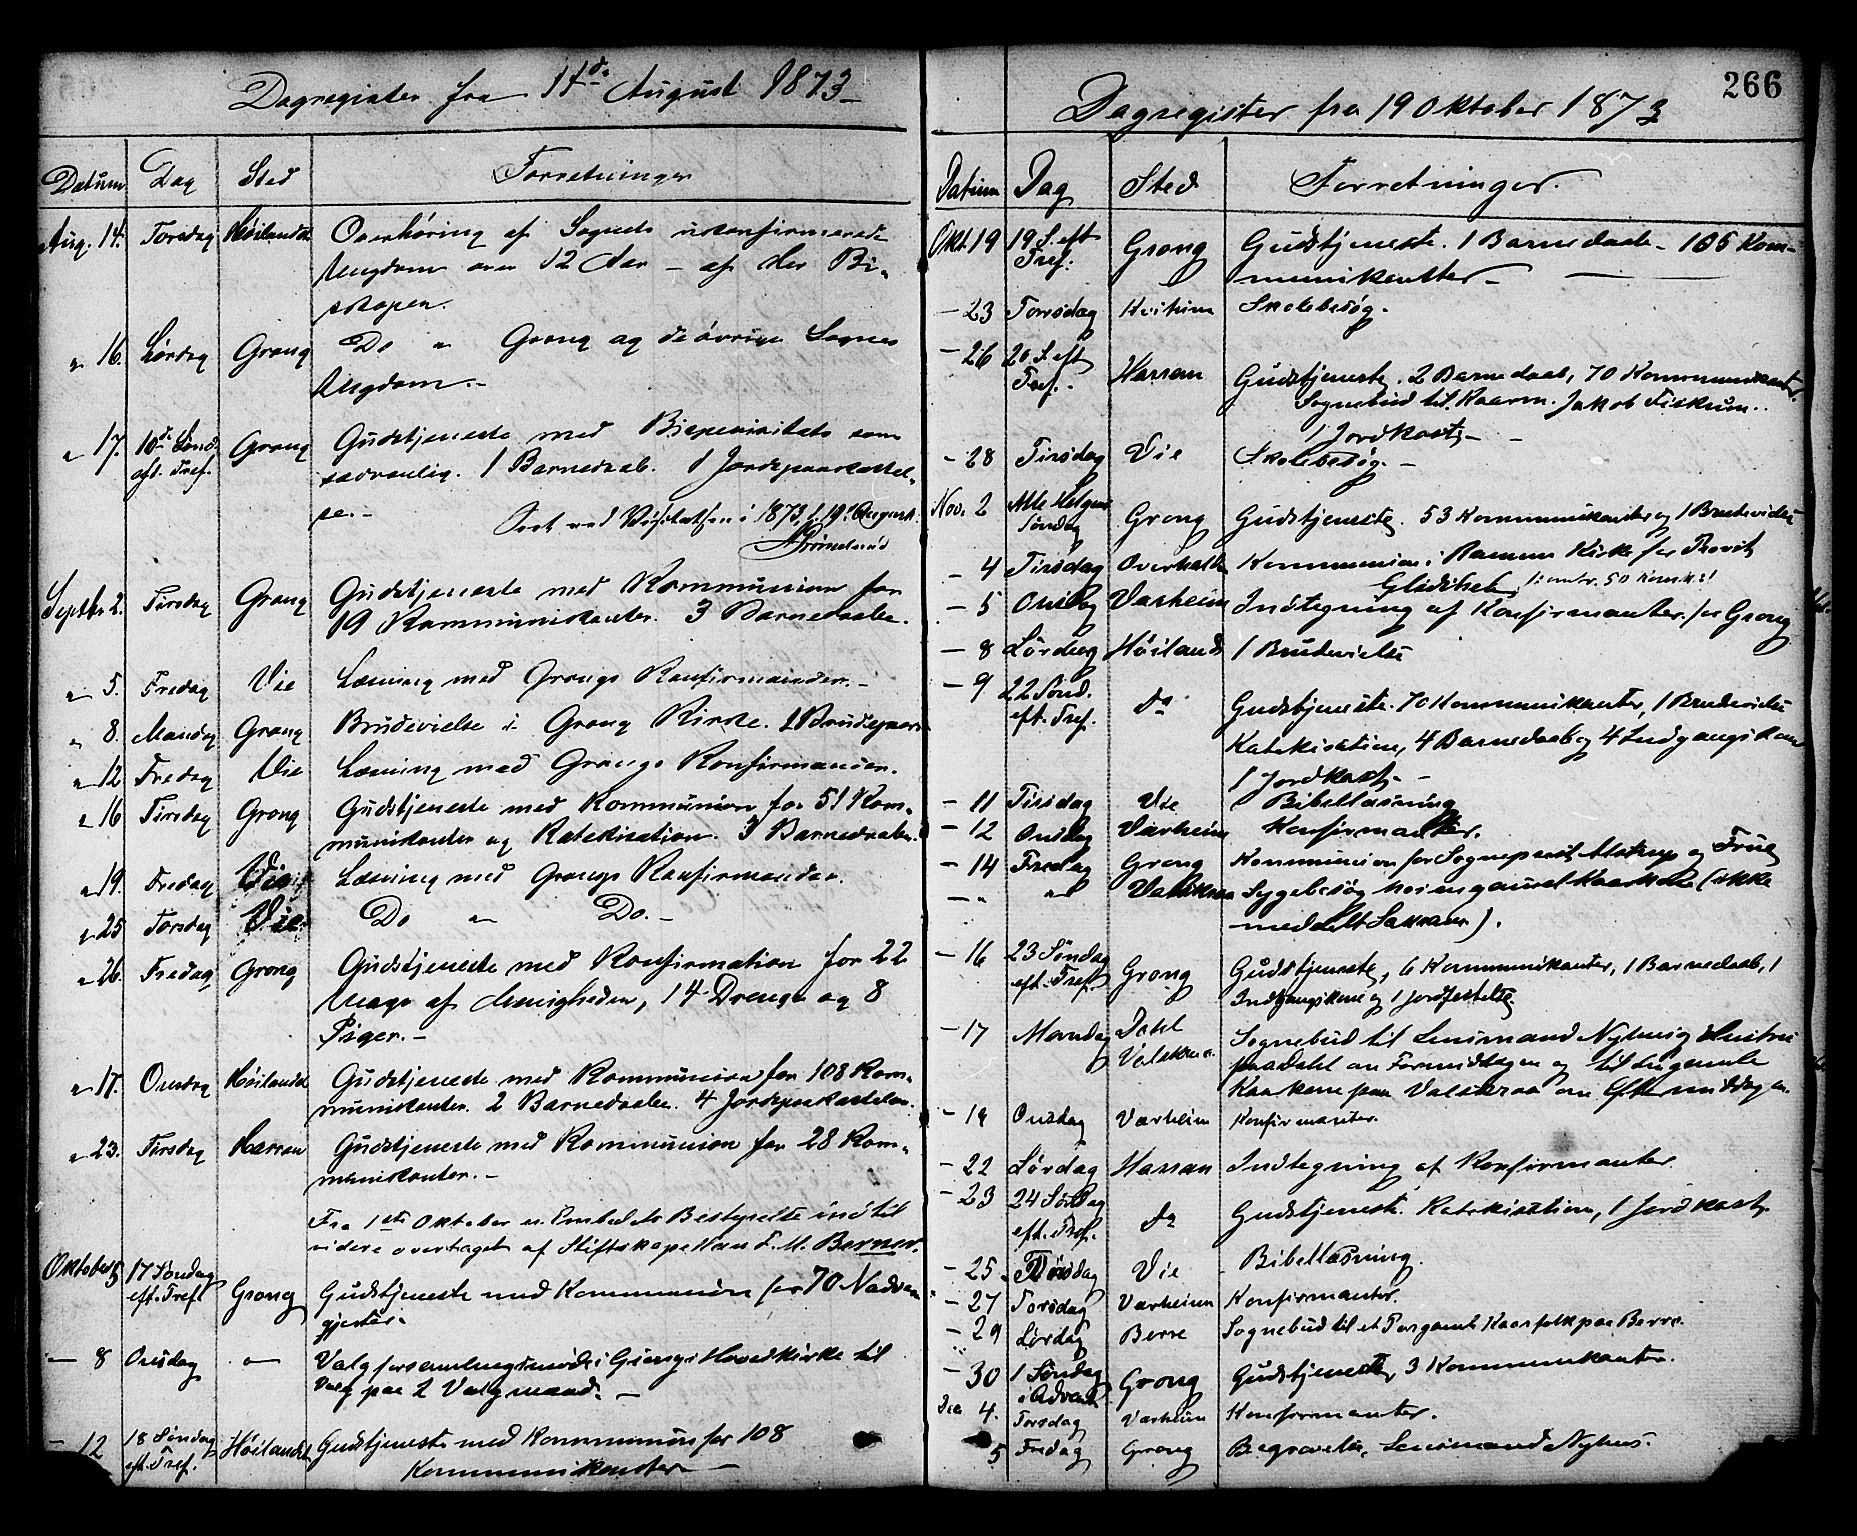 Dagregister fra 14de August 1873
Datum Dag Sted Forretninger
Aug. 14. Torsdag Høilandet Overhøring af Sognets ukonfirmerede
Ungdom over 12 Aar – af Hr Bi-
skopen.
" 16. Lørdag Grong Do " Grong og de øvrige Sognes
Ungdom. –
" 17. 10de Sønd. eft. Tref. Grong Gudstjeneste med Bispevisitats som
sædvanlig. 1 Barnedaab. 1 Jordspaakastel-
se. –
Seet ved Visitatsen i 1873 d. 19 August.
Septbr 2. Tirsdag Grong Gudstjeneste med Kommunion for
19 Kommunikanter. 3 Barnedaabe.
" 5. Fredag Vie Læsning med Grongs Konfirmander. –
" 8. Mandag Grong Brudevielse i Grong Kirke. 2 Brudepar
" 12 Fredag Vie Læsning med Grongs Konfirmander.
" 16 Tirsdag Grong Gudstjeneste med Kommunion for 51 Kom-
munikanter og Katekisation. 3 Barnedaabe.
" 19. Fredag Vie Læsning med Grongs Konfirmander.
" 25 Torsdag Vie Do " Do. –
" 26. Fredag Grong Gudstjeneste med Konfirmation for 22
Unge af Menigheden, 14 Drenge og 8
Piger. –
" 17. Onsdag Høilandet Gudstjeneste med Kommunion for 108 Kom-
munikanter. 2 Barnedaabe. 4 Jordspaakastelser.
" 23. Tirsdag Harran Gudstjeneste med Kommunion for 28 Kom-
munikanter. –
Fra 1ste Oktober er Embedets Bestyrelse indtil
videre overtaget af Stiftskapellan F. M. Berner.
Oktober 5 17 Søndag eft. Tref. Grong Gudstjeneste med Kommunion for 70 Nadver-
gjester.
– 8 Onsdag " Valgforsamlingsmøde i Grongs Hovedkirke til
Valg paa 2 Valgmænd. –
– 12 18 Søndag eft. Tref. Høilandet Gudstjeneste med Kommunion for 108
Kommunikanter –
266
Dagregister fra 19 Oktober 1873
Datum Dag Sted Forretninger.
Okt. 19 19 S. eft Tref. Grong Gudstjeneste. 1 Barnedaab – 106 Kom-
munikanter –
– 23 Torsdag Skolebesøg.
– 26 20 S. eft Tref. Harran Gudstjeneste. 2 Barnedaab, 70 Kommunikanter.
Sognebud til Kaarm. Jakob Fiskum.
1 Jordkast. –
– 28 Tirsdag Vie Skolebesøg. –
Nov. 2 Alle Helgens Søndag Grong Gudstjeneste. 53 Kommunikanter og 1 Brudevielse
– 4 Tirsdag Overhalla Kommunion i Ranem Kirke for Provst
– 5 Onsdag Værheim Indtegning af Konfirmanter for Grong
– 8 Lørdag Høiland 1 Brudevielse
– 9 22 Sønd. eft. Tref. do Gudstjeneste. 70 Kommunikanter, 1 Brudevielse
Katekisation, 4 Barnedaab og 4 Indgangskoner
1 Jordkast. –
– 11 Tirsdag Vie Bibellæsning
– 12 Onsdag Værheim Konfirmanter.
– 14 Fredag Grong Kommunion for Sognepræst Alstrup og Frue
– " " Sygebesøg hos en gammel Kaarkone (ikke
meddelt Sakram).
– 16 23 Søndag eft. Tref. Grong Gudstjeneste, 6 Kommunikanter, 1 Barnedaab, 1
Indgangskone og 1 Jordfestelse
– 17 Mandag Dahl Sognebud til Lensmand Nyhus's Hustru
paa Dahl om Formiddagen og til
om Eftermiddagen.
– 19 Onsdag Værheim Konfirmanter.
– 22 Lørdag Harran Indtegning af Konfirmanter.
– 23 24 Søndag eft. Tref. do Gudstjeneste. Katekisation, 1 Jordkast.
– 25 Tirsdag Vie Bibellæsning.
– 27 Torsdag Værheim Konfirmanter.
– 29 Lørdag Berre Sognebud til et Par gamle Kaarfolk paa Berre.
– 30 1 Søndag i Advent Grong Gudstjeneste, 3 Kommunikanter.
Dec. 4. Torsdag Værheim Konfirmanter.
5 Fredag Grong Begravelse, Lensmand Nyhus.